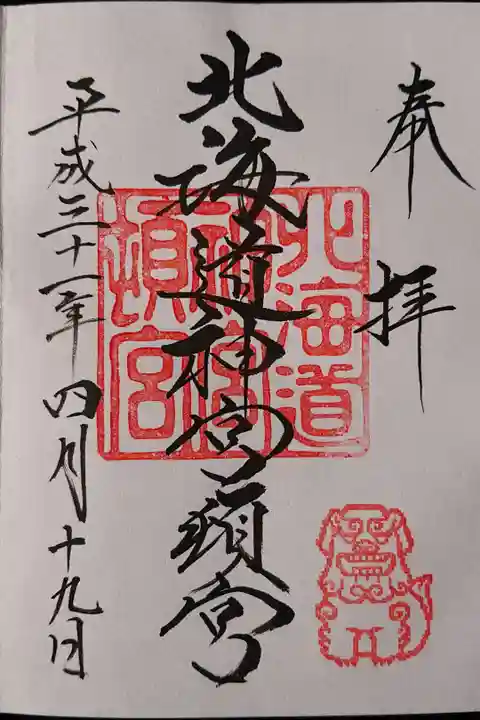 奉拝
北海道神宮頓宮
平成三十一年四月十九日
北海道
神宮
頓宮